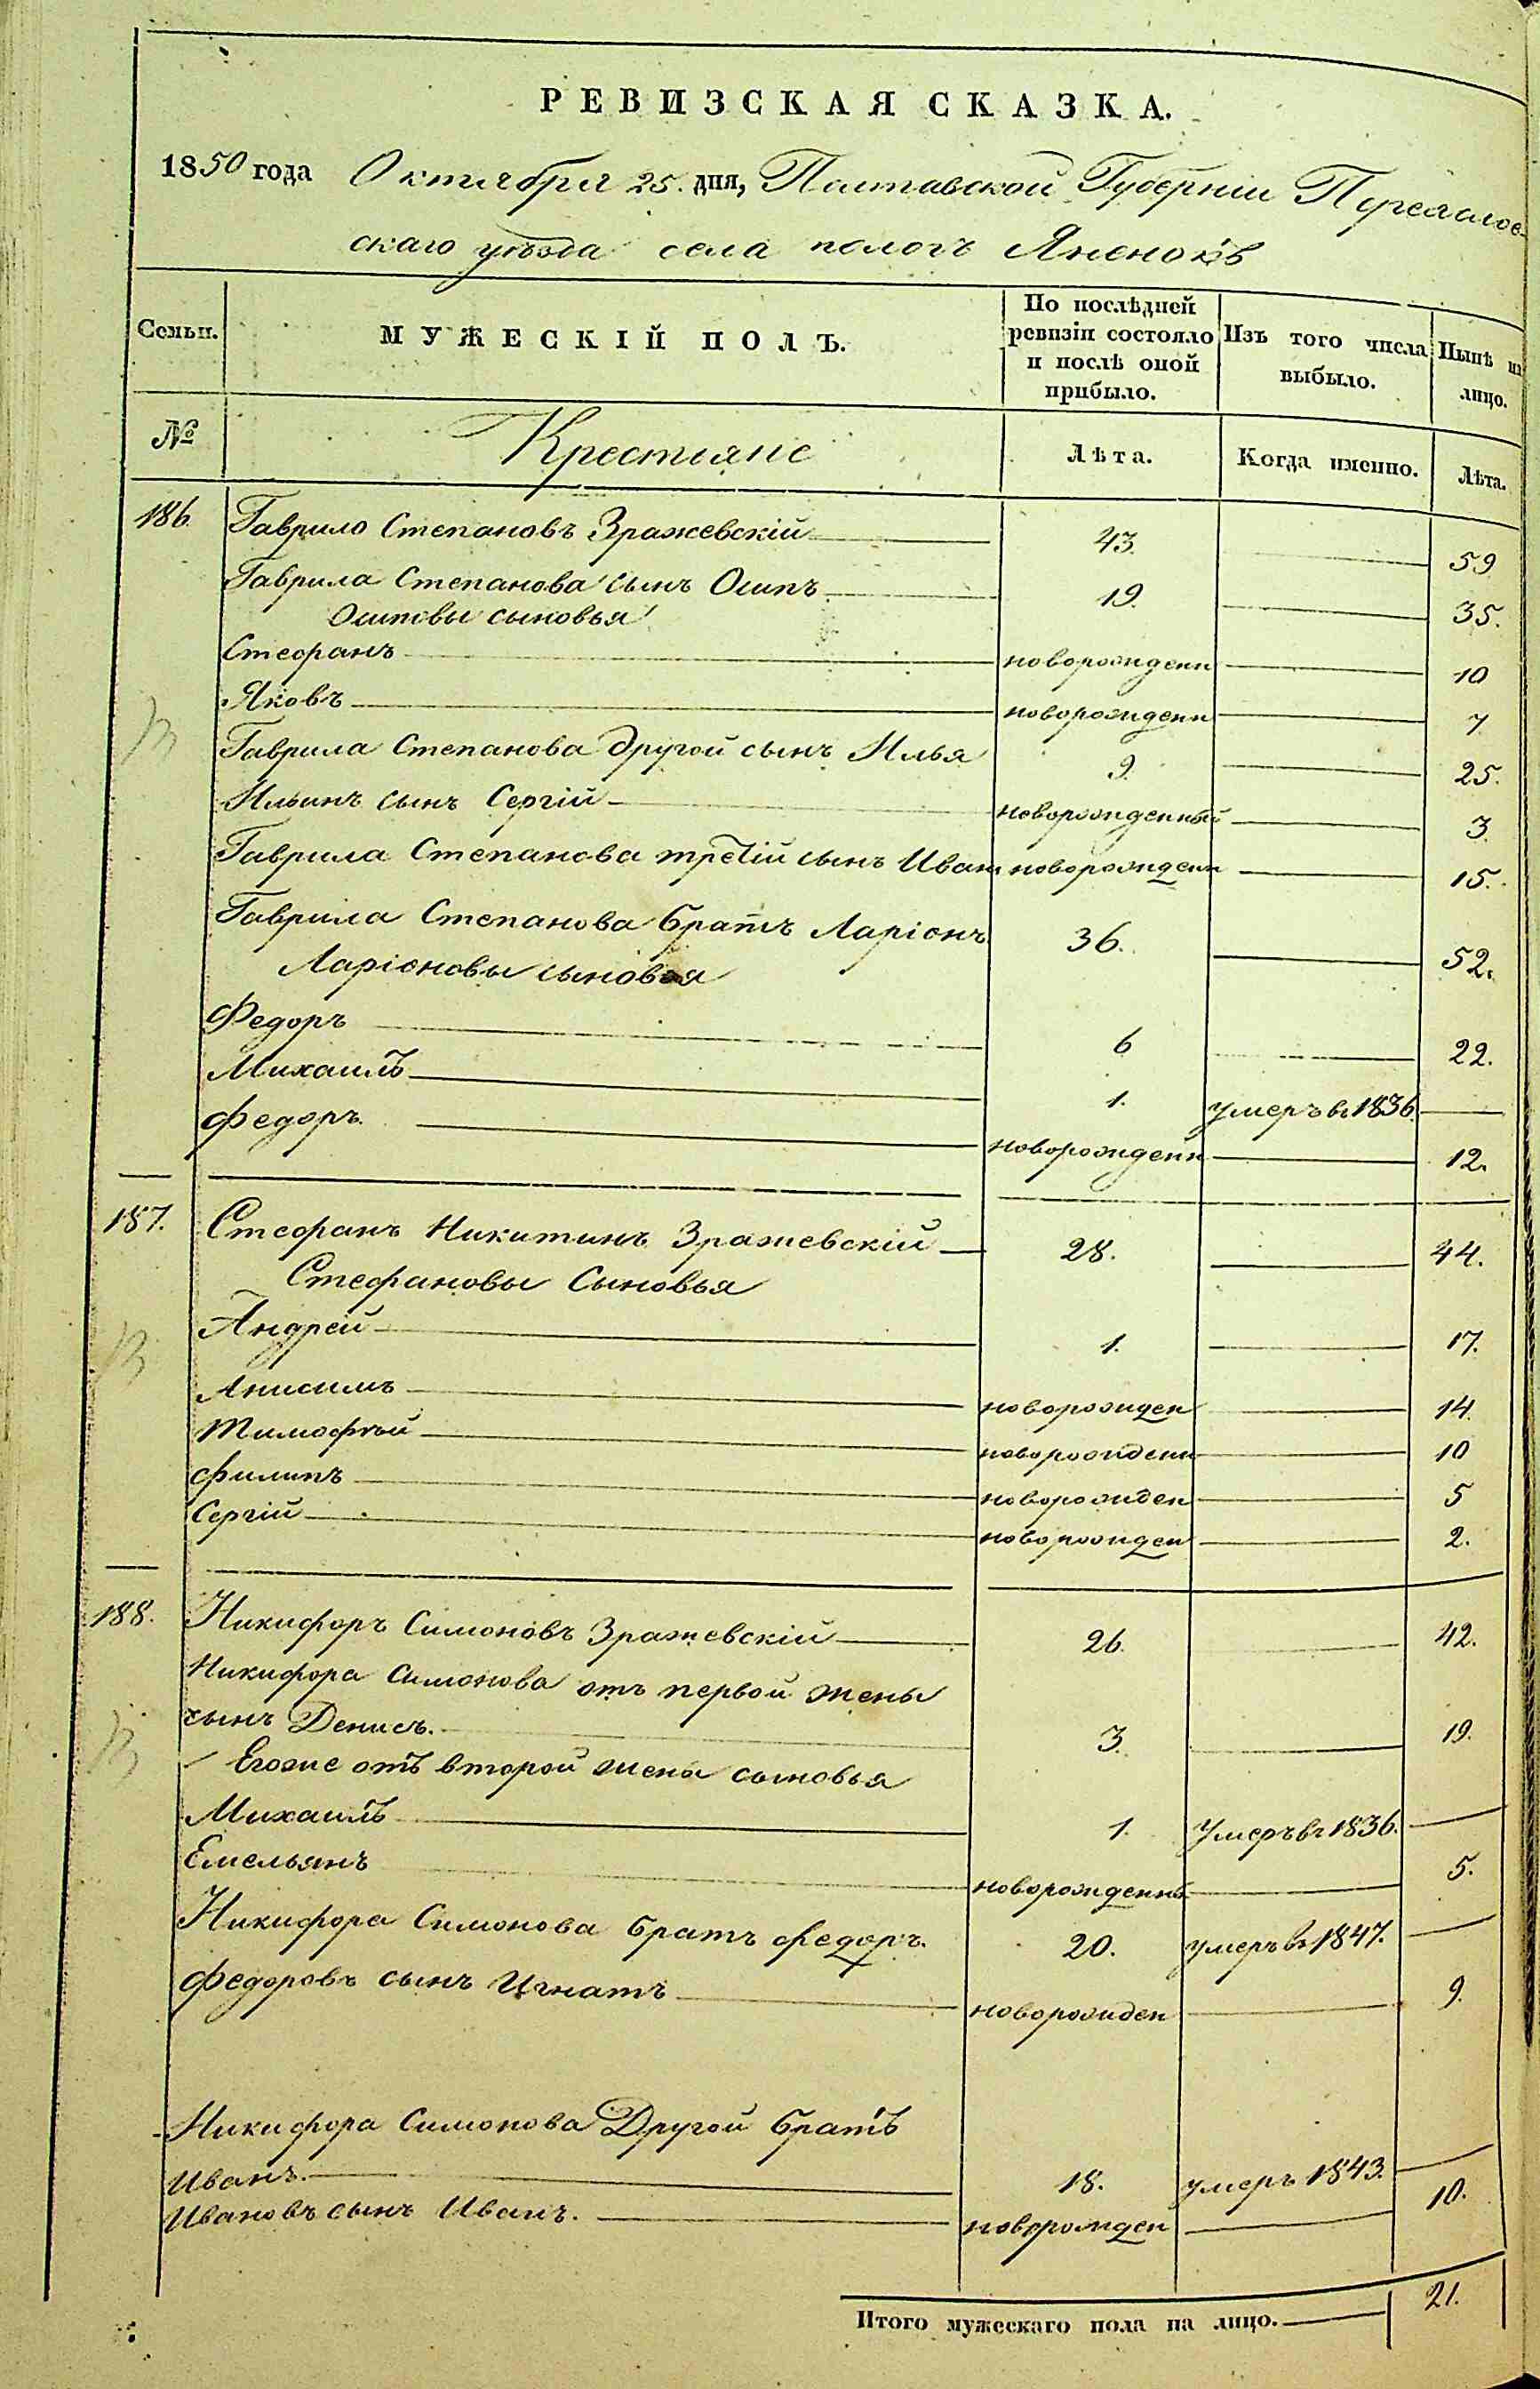 РЕВИЗСКАЯ СКАЗКА.
1850 года Октября 25. дня, Полтавской Губерніи Переяслов-
скаго уѣзда села пологъ Яненокъ
Семьи. МУЖЕСКІЙ ПОЛЪ. По послѣдней ревизіи состояло и послѣ оной прибыло. Изъ того числа выбыло. Нынѣ на лицо.
№ Крестьяне Лѣта. Когда именно. Лѣта.
186. Гаврило Степановъ Зражевскій 43. 59
Гаврила Степанова сынъ Осипъ 19. 35.
Осиповы сыновья
Стефанъ новорожденн 10
Яковъ новорожденн 7
Гаврила Степанова другой сынъ Илья 9. 25.
Ильинъ сынъ Сергій новорожденный 3.
Гаврила Степанова третій сынъ Иван новорожденн 15.
Гаврила Степанова братъ Ларіонъ 36. 52.
Ларіоновы сыновья
Федоръ 6 22.
Михаилъ 1. умеръ въ 1836.
Федоръ. новорожденн 12.
187. Стефанъ Никитинъ Зражевскій 28. 44.
Стефановы Сыновья
Андрей 1. 17.
Анисимъ новорожден 14.
Тимофѣй новорожденн 10
Филипъ новорожден 5
Сергій новорожден 2.
188. Никифоръ Симоновъ Зражевскій 26. 42.
Никифора Симонова отъ первой жены
сынъ Денисъ. 3. 19.
Егоже отъ второй жены сыновья
Михаилъ 1. Умеръ въ 1836.
Емельянъ новорожденнъ 5.
Никифора Симонова братъ Федоръ. 20. умеръ въ 1847.
Федоровъ сынъ Игнатъ новорожден 9.
Никифора Симонова Другой братъ
Иванъ. 18. умеръ 1843.
Ивановъ сынъ Иванъ. новорожден 10.
Итого мужескаго пола на лицо. 21.